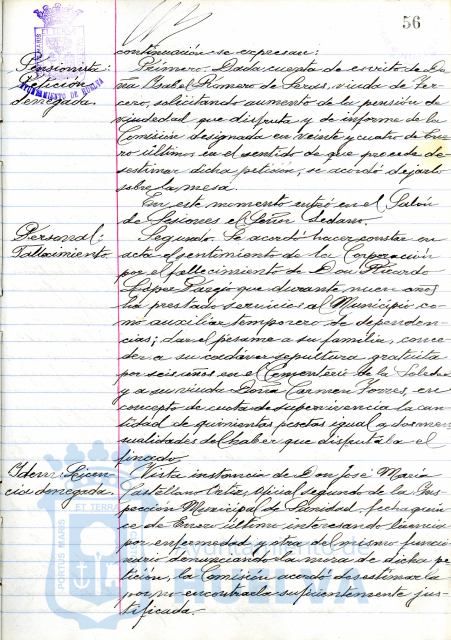 56
continuación se expresan:
Pensionista:
Petición
denegada.
AYUNTAMIENTO DE HUELVA
Primero. Dada cuenta de escrito de Do-
ña Isabel Romero de viuda de
cero, solicitando aumento de la pensión de
viudedad que disfruta y de informe de la
Comisión designada en veinte y cuatro de Ene-
ro último, en el sentido de que procede de-
sestimar dicha petición, se acordó dejarlo
sobre la mesa.
En este momento entró en el Salón
de Sesiones el Señor Sedano.
Personal:
Fallecimiento.
Segundo. Se acordó hacer constar en
acta el sentimiento de la Corporación
por el fallecimiento de Don Ricardo
López que durante nueve años
ha prestado servicios al Municipio co-
mo auxiliar temporero de dependen-
cias; dar el pésame a su familia, conce-
der a su cadáver sepultura gratuita
por seis años en el Cementerio de la Soledad
y a su viuda Doña Carmen Torres, en
concepto de cuota de supervivencia la can-
tidad de quinientas pesetas igual a dos men-
sualidades del haber que disfrutaba el
finado.
Idem: Licen-
cia denegada.
Vista instancia de Don José María
Castellano Ortiz, Oficial segundo de la Ins-
pección Municipal de Sanidad, fecha quin-
ce de Enero último interesando licencia
por enfermedad y otra del mismo funcio-
nario denunciando la mora de dicha pe-
tición, la Comisión acordó desestimarla
por no encontrarla suficientemente jus-
tificada.
PORTUS MARIS
ET TERRAE
Ayuntamiento de
HUELVA